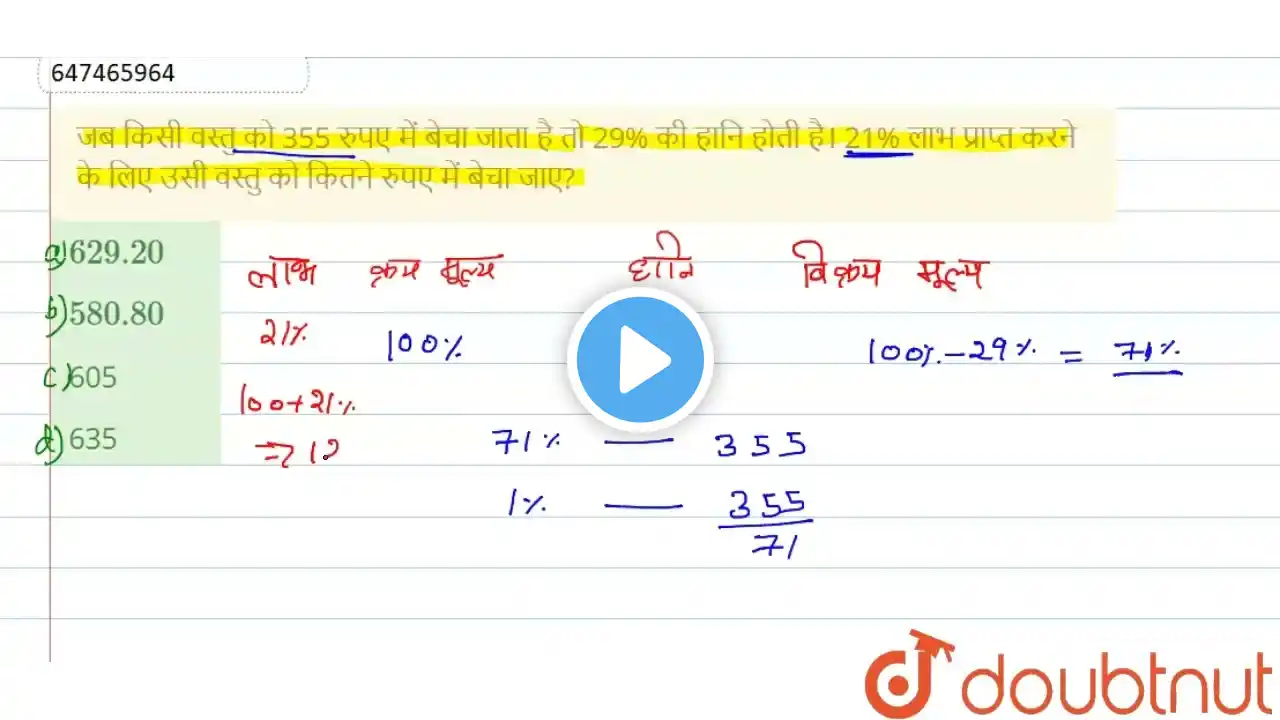 647465964
जब किसी वस्तु को 355 रुपए में बेचा जाता है तो 29% की हानि होती है। 21% लाभ प्राप्त करने
के लिए उसी वस्तु को कितने रुपए में बेचा जाए?
a) 629.20
b) 580.80
c) 605
d) 635
लाभ क्रय मूल्य हानि विक्रय मूल्य
21% 100% 100% - 29% = 71%
100+21%
71% — 355
⇒ 12
1% — 355
71
doubtnut